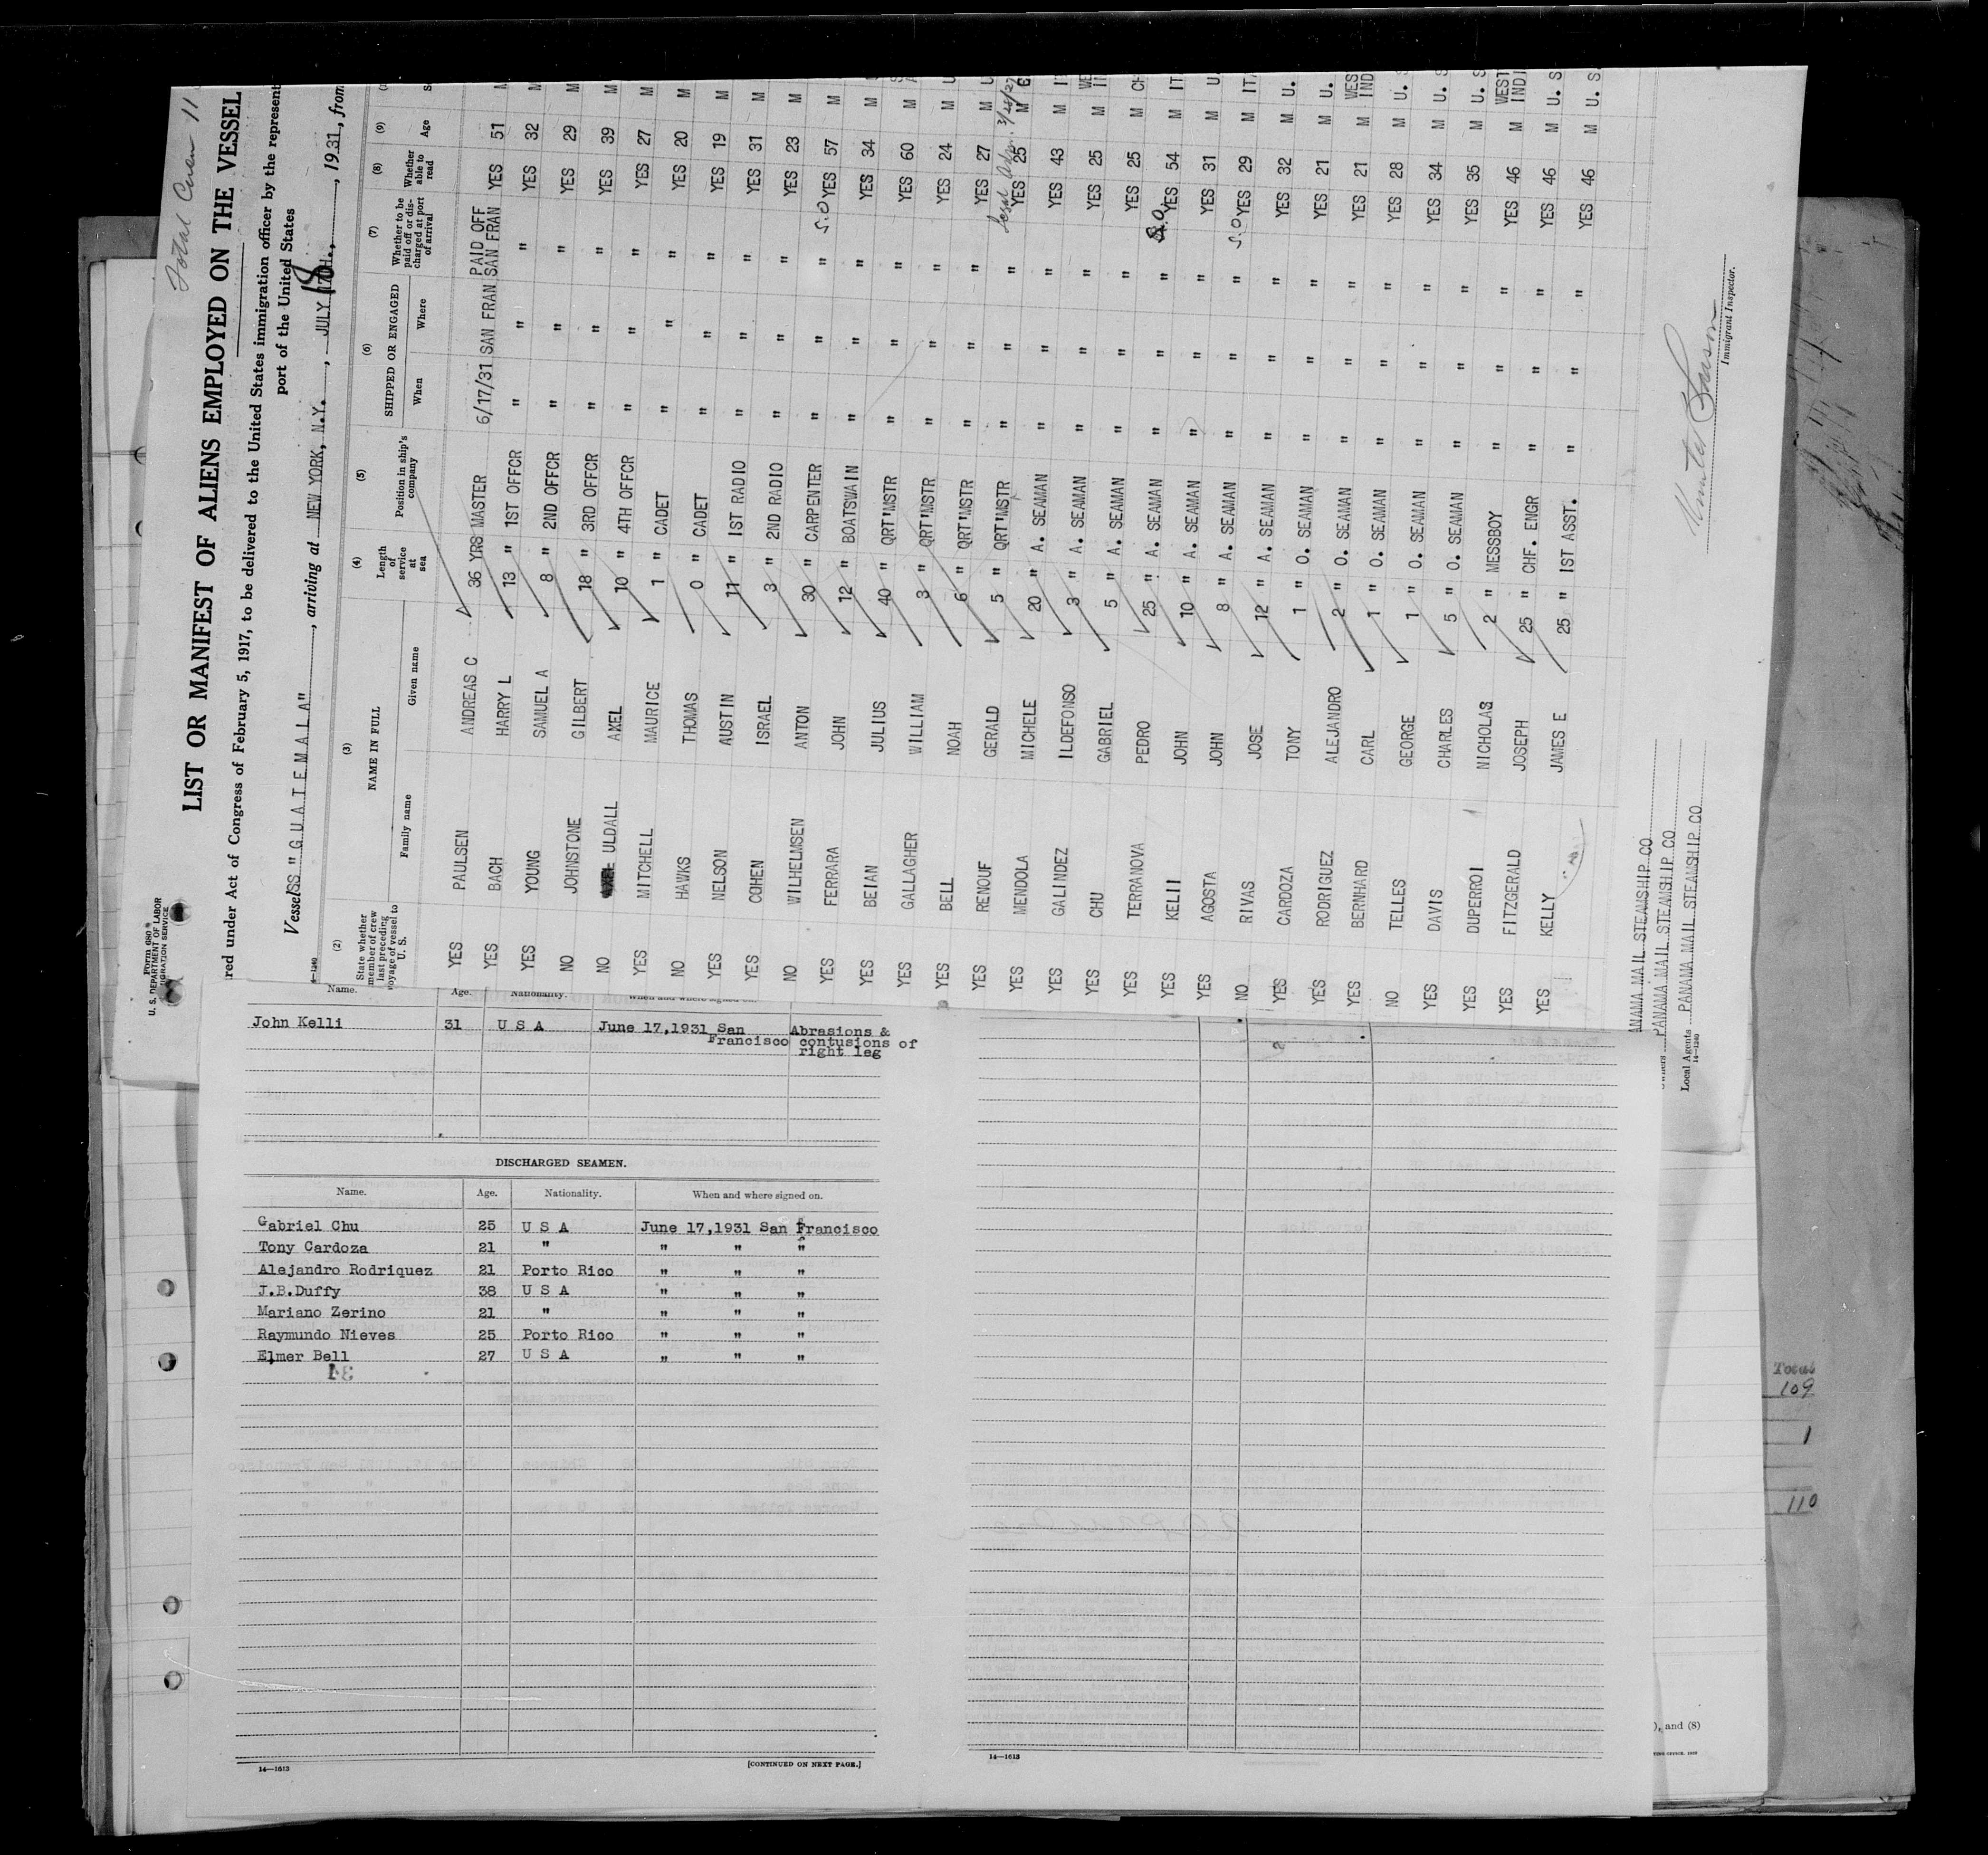 Total Crew 11
Form 680
U. S. DEPARTMENT OF LABOR
IMMIGRATION SERVICE
LIST OR MANIFEST OF ALIENS EMPLOYED ON THE VESSEL
red under Act of Congress of February 5, 1917, to be delivered to the United States immigration officer by the represent
port of the United States
Vessel SS "GUATEMALA", arriving at NEW YORK, N.Y., JULY 18, 1931, from
14—1240
(2) (3) (4) (5) (6) (7) (8) (9)
State whether member of crew last preceding voyage of vessel to U. S. NAME IN FULL Family name Given name Length of service at sea Position in ship's company SHIPPED OR ENGAGED When Where Whether to be paid off or discharged at port of arrival Whether able to read Age
YES PAULSEN ANDREAS C 36 YRS MASTER 6/17/31 SAN FRAN PAID OFF SAN FRAN YES 51 M
YES BACH HARRY L 13 " 1ST OFFCR " " " YES 32 M
YES YOUNG SAMUEL A 8 " 2ND OFFCR " " " YES 29 M
NO JOHNSTONE GILBERT 18 " 3RD OFFCR " " " YES 39 M
NO ULDALL AXEL 10 " 4TH OFFCR " " " YES 27 M
YES MITCHELL MAURICE 1 " CADET " " " YES 20 M
NO HAWKS THOMAS 0 " CADET " " " YES 19 M
YES NELSON AUSTIN 11 " 1ST RADIO " " " YES 31 M
YES COHEN ISRAEL 3 " 2ND RADIO " " " YES 23 M
NO WILHELMSEN ANTON 30 " CARPENTER " " " S.O YES 57 M
YES FERRARA JOHN 12 " BOATSWAIN " " " YES 34 M
YES BEIAN JULIUS 40 " QRT'MSTR " " " YES 60 M
YES GALLAGHER WILLIAM 3 " QRT'MSTR " " " YES 24 M U
YES BELL NOAH 6 " QRT'MSTR " " " YES 27 M U
YES RENOUF GERALD 5 " QRT'MSTR " " " Legal Adm. YES 25 M
YES MENDOLA MICHELE 20 " A. SEAMAN " " " YES 43 M IT
YES GALINDEZ ILDEFONSO 3 " A. SEAMAN " " " YES 25 M WE
YES CHU GABRIEL 5 " A. SEAMAN " " " YES 25 M CH
YES TERRANOVA PEDRO 25 " A. SEAMAN " " " S.O. YES 54 M IT
YES KELII JOHN 10 " A. SEAMAN " " " YES 31 M U
YES AGOSTA JOHN 8 " A. SEAMAN " " " S.O YES 29 M ITA
NO RIVAS JOSE 12 " A. SEAMAN " " " YES 32 M U.
YES CARDOZA TONY 1 " O. SEAMAN " " " YES 21 M U.
YES RODRIGUEZ ALEJANDRO 2 " O. SEAMAN " " " YES 21 M WES IND
YES BERNHARD CARL 1 " O. SEAMAN " " " YES 28 M U. S
NO TELLES GEORGE 1 " O. SEAMAN " " " YES 34 M U. S
YES DAVIS CHARLES 5 " O. SEAMAN " " " YES 35 M U. S
YES DUPERROI NICHOLAS 2 " MESSBOY " " " YES 46 M WEST INDI
YES FITZGERALD JOSEPH 25 " CHF. ENGR " " " YES 46 M U. S
YES KELLY JAMES E 25 " 1ST ASST. " " " YES 46 M U. S.
ANAMA MAIL STEAMSHIP CO
Owners PANAMA MAIL STEAMSHIP CO
Local Agents PANAMA MAIL STEAMSHIP CO
14—1240
Immigrant Inspector.
Name. Age. Nationality. When and where signed on.
John Kelli 31 U S A June 17,1931 San Francisco Abrasions & contusions of right leg
DISCHARGED SEAMEN.
Name. Age. Nationality. When and where signed on.
Gabriel Chu 25 U S A June 17,1931 San Francisco
Tony Cardoza 21 " " " "
Alejandro Rodriquez 21 Porto Rico " " "
J.B.Duffy 38 U S A " " "
Mariano Zerino 21 " " " "
Raymundo Nieves 25 Porto Rico " " "
Elmer Bell 27 U S A " " "
14—1613
[CONTINUED ON NEXT PAGE.]
14—1613
Total
109
1
110
), and (8)